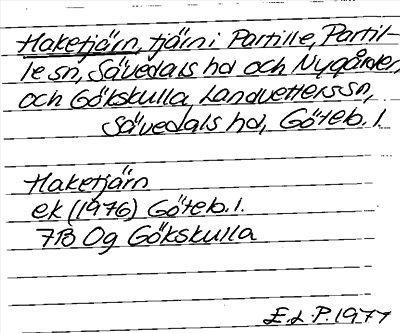 Haketjärn, tjärn i Partille, Partil-
le sn, Sävedals hd och Nygården,
och Gökskulla, Landvetters sn,
Sävedals hd, Göteb. l.
Haketjärn
ek (1976) Göteb. l.
7B 0g Gökskulla
E. L. P. 1977